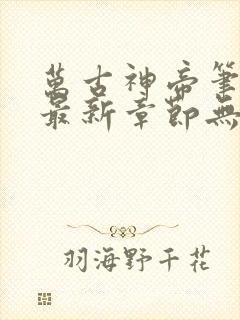 萬古神帝筆
最新章節無
羽海野千花